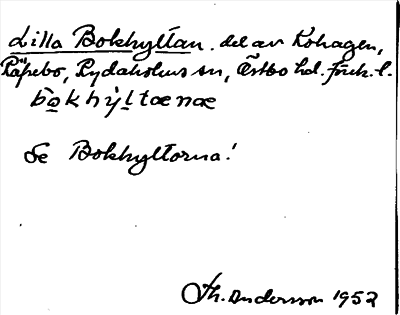 Lilla Bokhyltan. del av Kohagen,
Råpebo, Rydaholms sn, Östbo hd. Jönk. l.
bo̱khỳḻtænæ
Se Bokhyltorna!
Th. Andersson 1952